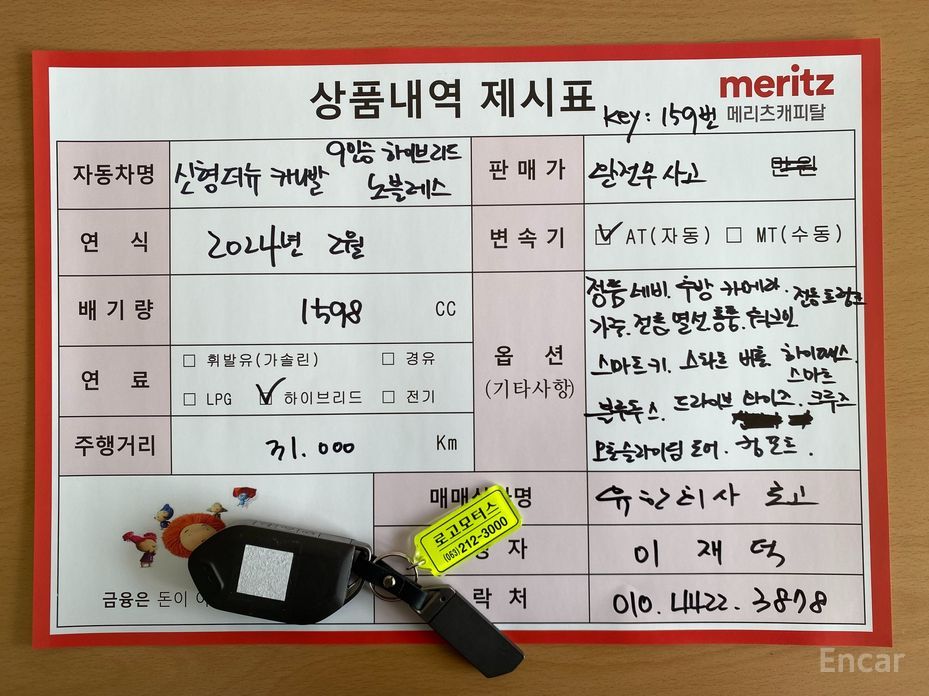 상품내역 제시표
meritz
메리츠캐피탈
key: 159번
자동차명
신형더뉴 카니발
9인승 하이브리드
노블레스
판매가
완전무사고
만원
연 식
2024년 2월
변속기
AT(자동)
MT(수동)
배기량
1598 CC
옵 션
(기타사항)
정품네비. 후방 카메라. 전동트렁크
가죽. 전동 열선통풍.
스마트키. 스타트 버튼. 하이패스.
스마트
블루투스. 드라이브 와이즈. 크루즈
오토슬라이딩 도어.
연 료
휘발유(가솔린)
경유
LPG
하이브리드
전기
주행거리
31.000 Km
매매
명
유한회사 로고
자
이 재 덕
락처
010. 4422. 3878
로고모터스
(063)212-3000
금융은 돈이
Encar